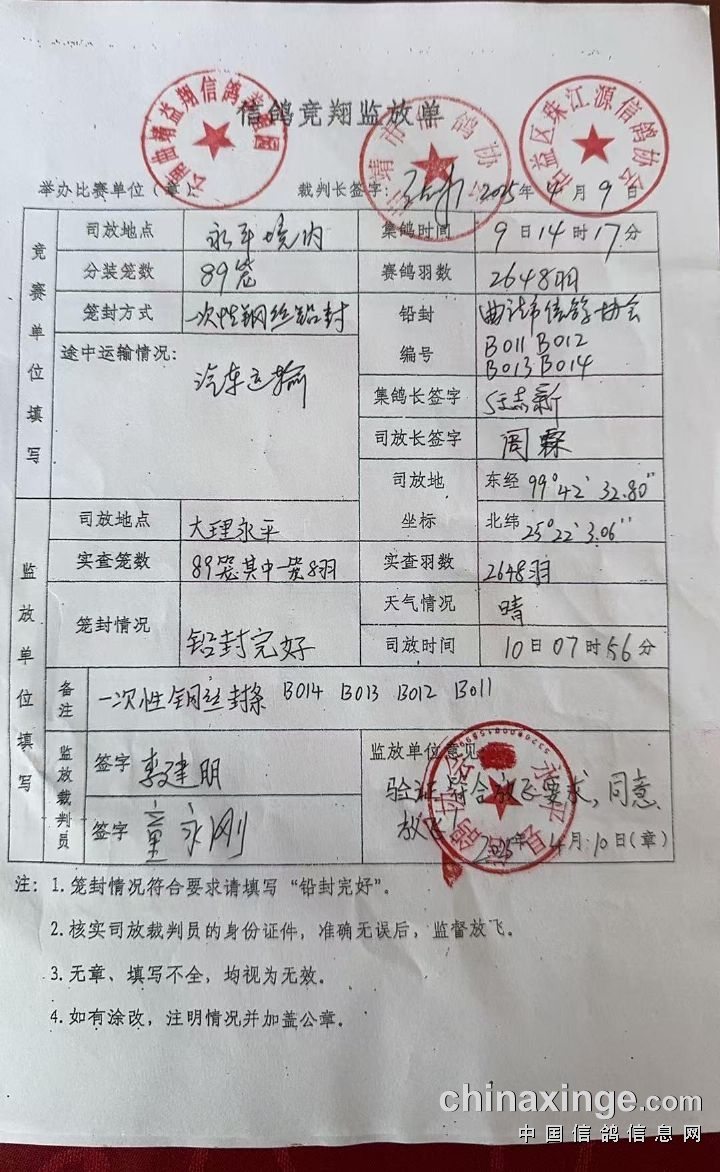 信鸽竞翔监放单
沾益区珠江源信鸽协会
举办比赛单位(章) 裁判长签字: 2025年4月9日
竞赛单位填写
司放地点 永平境内 集鸽时间 9日14时17分
分装笼数 89笼 赛鸽羽数 2648羽
笼封方式 一次性钢丝铅封 铅封编号 曲靖市信鸽协会
B011 B012
B013 B014
途中运输情况: 汽车运输
集鸽长签字
司放长签字 周霖
司放地坐标 东经 99°42′32.80″
北纬 25°22′3.06″
监放单位填写
司放地点 大理永平
实查笼数 89笼其中一笼8羽 实查羽数 2648羽
笼封情况 铅封完好 天气情况 晴
司放时间 10日07时56分
备注 一次性钢丝封条 B014 B013 B012 B011
监放裁判员 签字 李建明
签字 童永刚
监放单位意见
验证符合放飞要求,同意
放飞!
2025年4月10日(章)
注: 1.笼封情况符合要求请填写“铅封完好”。
2.核实司放裁判员的身份证件,准确无误后,监督放飞。
3.无章、填写不全,均视为无效。
4.如有涂改,注明情况并加盖公章。
chinaxinge.com
中国信鸽信息网